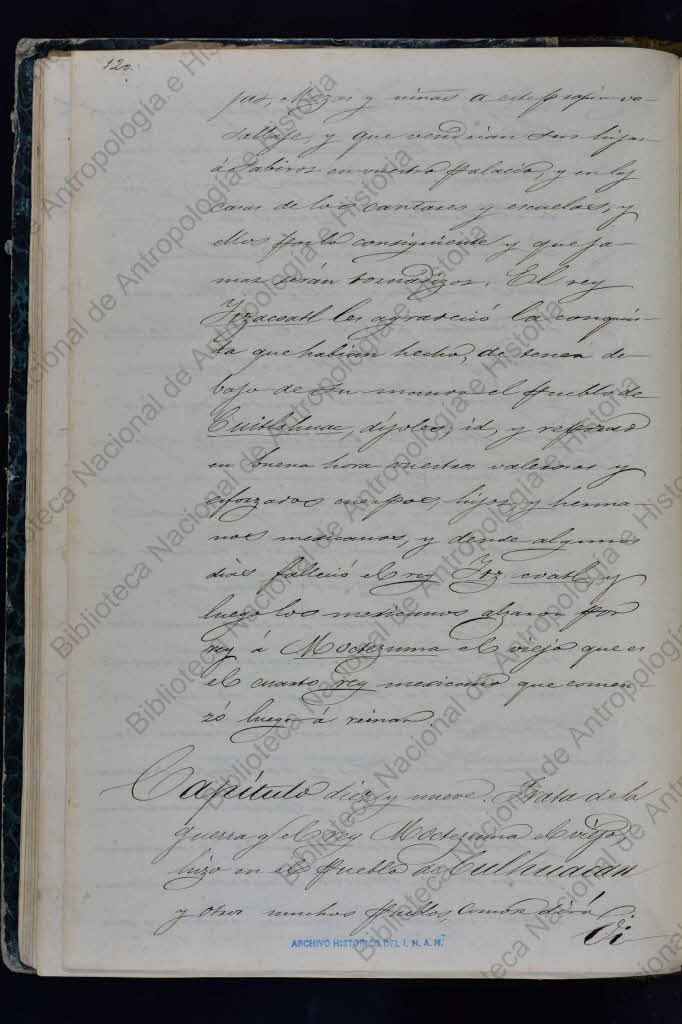 120.
jas, Mozas y niñas a este propio va-
sallaje, y que vendrian sus hijas
á serbiros en vuestro Palacio, y en las
casas de los cantares y escuelas, y
ellos por lo consiguiente y que ja-
mas serán tornadizos. El rey
Itzacoatl les agradeció la conquis-
ta que habian hecho, de tener de-
bajo de su mano el Pueblo de
Cuitlahuac, díjoles; id, y reposad
en buena hora vuestros valerosos y
esforzados cuerpos, hijos, y herma-
nos mexicanos, y dende algunos
dias falleció el rey Itz coatl, y
luego los mexicanos alzaron por
rey á Moctezuma el viejo que es
el cuarto rey mexicano que comen-
zó luego á reinar.
Capítulo diez y nueve. Trata de la
guerra q' el rey Moctezuma el viejo,
hizo en el Pueblo de Culhuacan
y otros muchos Pueblos, como se dirá
Di
ARCHIVO HISTORICO DEL I. N. A. H.
Biblioteca Nacional de Antropología e Historia